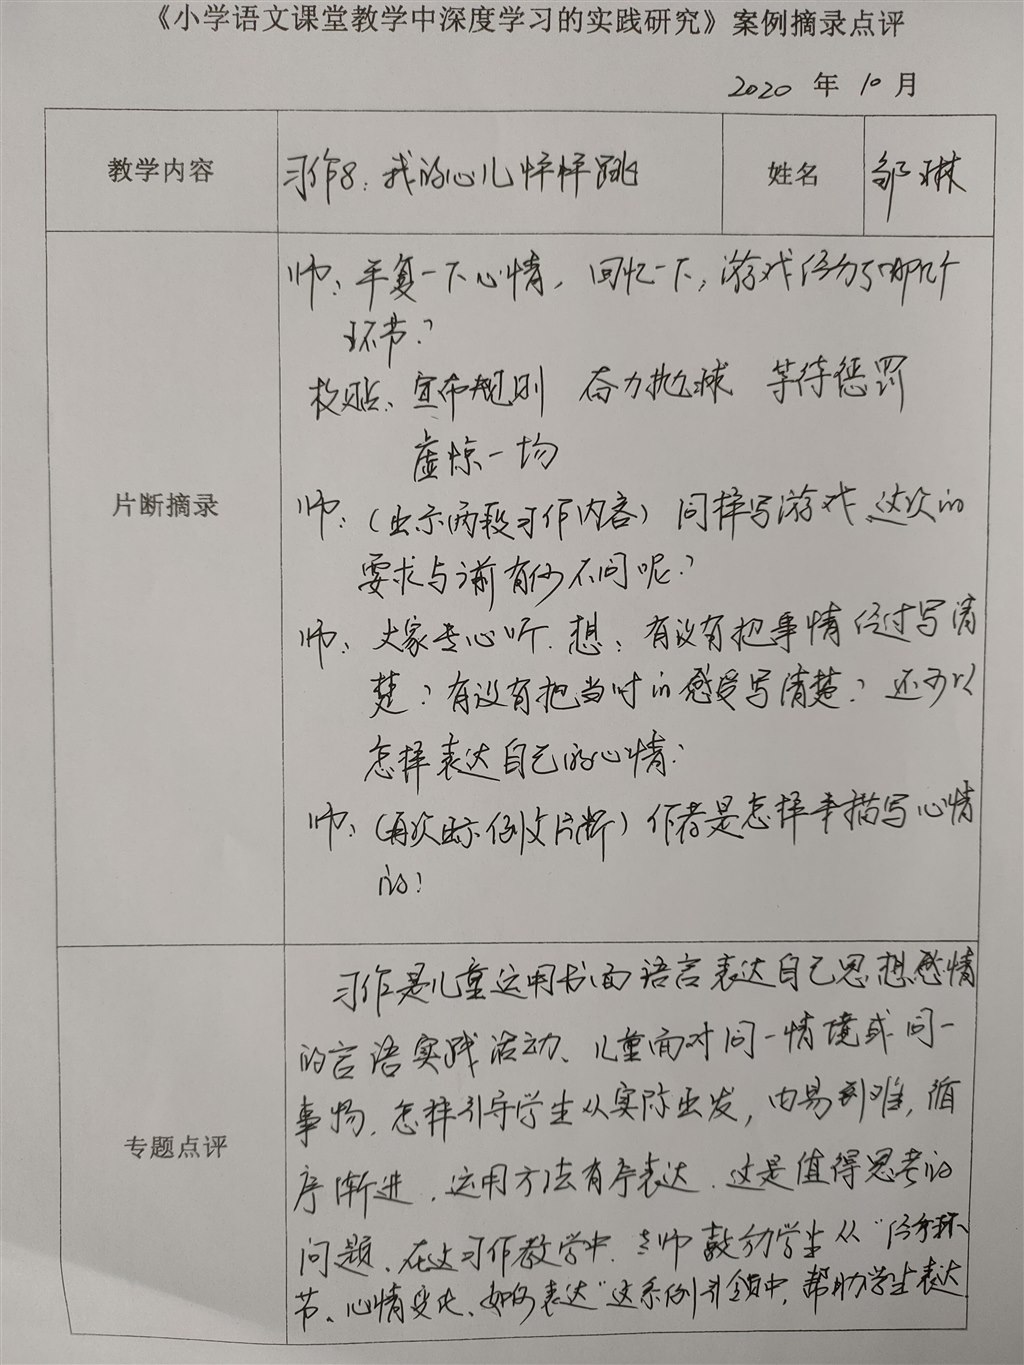 《小学语文课堂教学中深度学习的实践研究》案例摘录点评
2020 年 10 月
教学内容
习作8：我的心儿怦怦跳
姓名
邹琳
片断摘录
师：平复一下心情，回忆一下，游戏经为了哪几个
环节？
板贴：宣布规则 奋力抛球 等待惩罚
虚惊一场
师：（出示两段习作内容）同样写游戏，这次的
要求与之前有什么不同呢？
师：大家专心听，想：有没有把事情经过写清
楚？有没有把当时的感受写清楚？还可以
怎样表达自己的心情？
师：（再次出示例文片断）作者是怎样来描写心情
的！
专题点评
习作是儿童运用书面语言表达自己思想感情
的言语实践活动、儿童面对同一情境或同一
事物，怎样引导学生从实际出发，由易到难，循
序渐进，运用方法有序表达，这是值得思考的
问题、在这习作教学中，老师鼓励学生从“经分环
节、心情变化、如何表达”这系列引领中，帮助学生表达